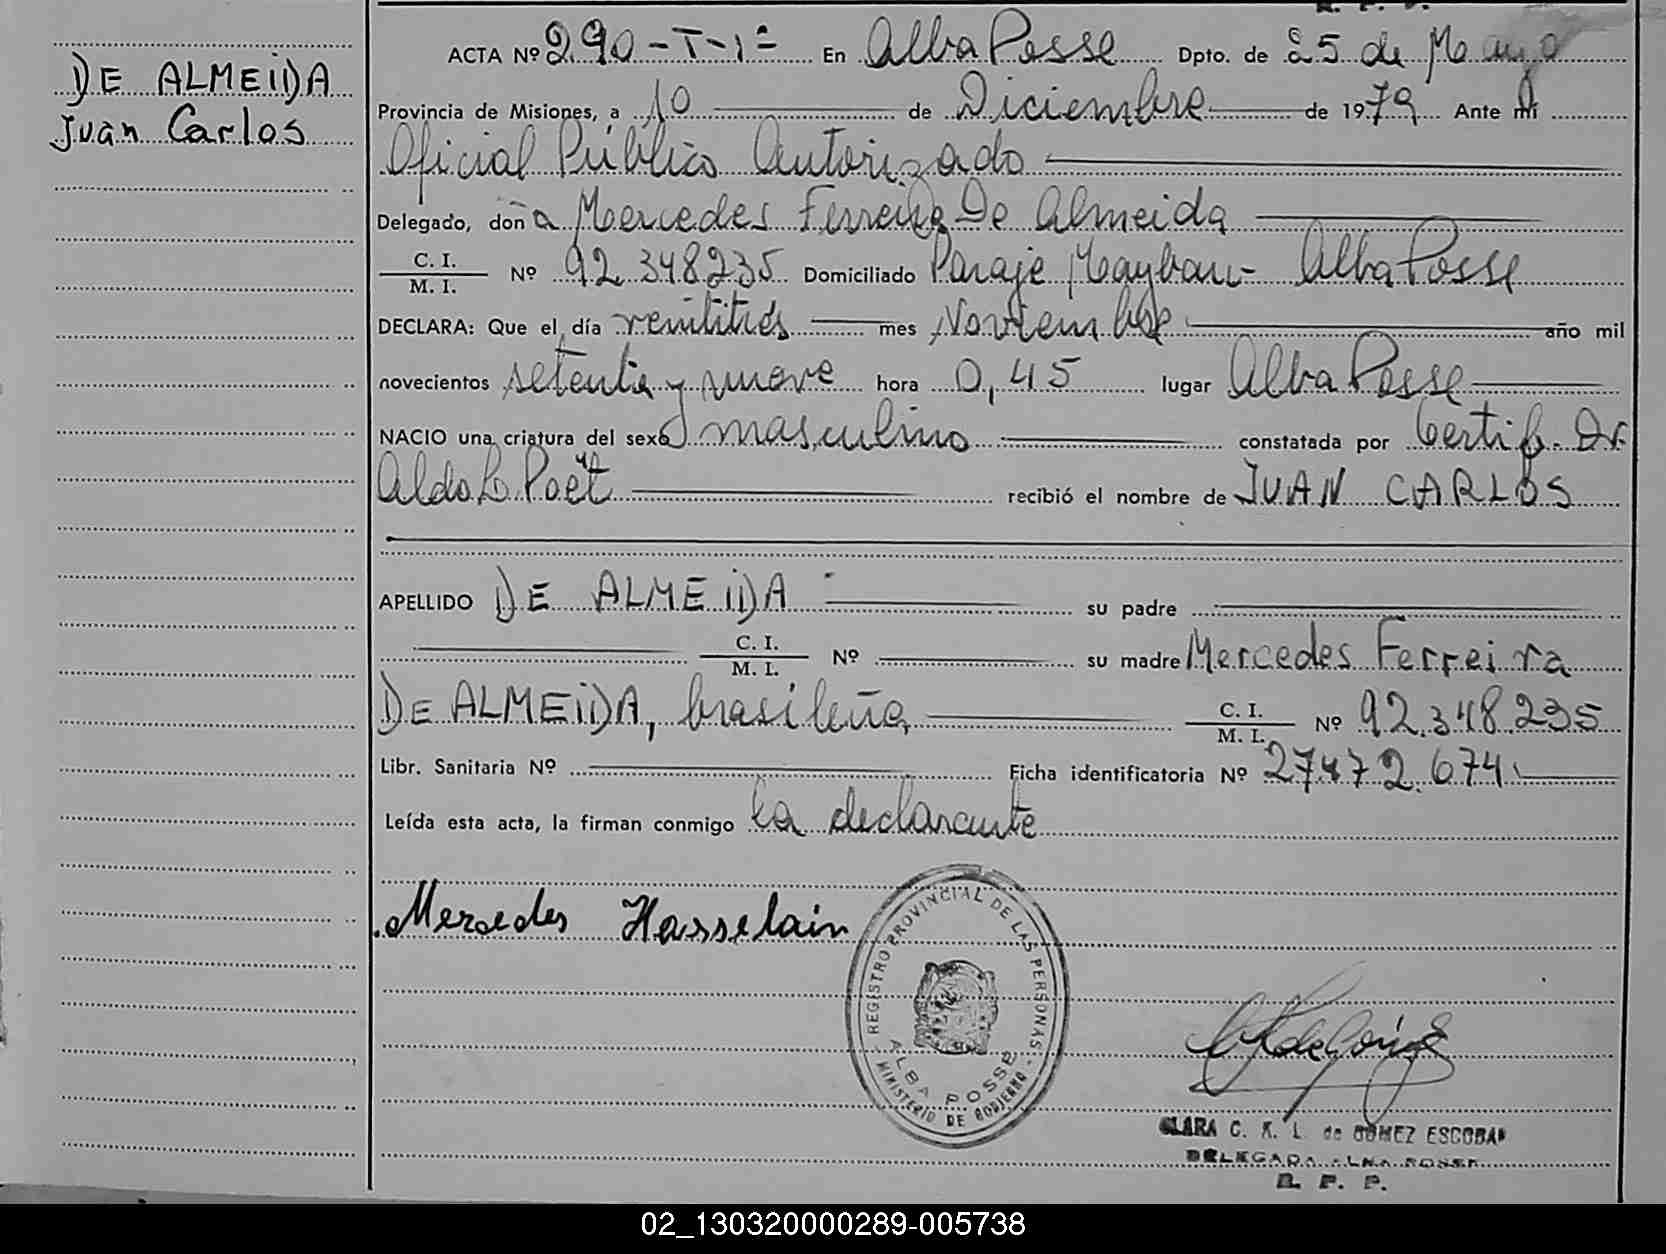 DE ALMEIDA
Juan Carlos
ACTA Nº 290-T-1º En Alba Posse Dpto. de 25 de Mayo
Provincia de Misiones, a 10 de Diciembre de 1979 Ante mí
Oficial Público Autorizado
Delegado, doña Mercedes Ferreira De Almeida
C. I.
M. I. Nº 92.348235 Domiciliado Paraje Alba Posse
DECLARA: Que el día veintitrés mes Noviembre año mil
novecientos setenta y nueve hora 0,45 lugar Alba Posse
NACIO una criatura del sexo masculino constatada por Certif. Dr.
Aldo L. Poët recibió el nombre de JUAN CARLOS
APELLIDO DE ALMEIDA su padre
C. I.
M. I. Nº su madre Mercedes Ferreira
DE ALMEIDA, brasileña, C. I.
M. I. Nº 92.348.235
Libr. Sanitaria Nº Ficha identificatoria Nº 27472.674
Leída esta acta, la firman conmigo la declarante
Mercedes Hasselain
REGISTRO PROVINCIAL DE LAS PERSONAS
ALBA POSSE
MINISTERIO DE GOBIERNO
CLARA C. K. L. de GOMEZ ESCOBAR
DELEGADA ALBA POSSE
R. P. P.
02_130320000289-005738